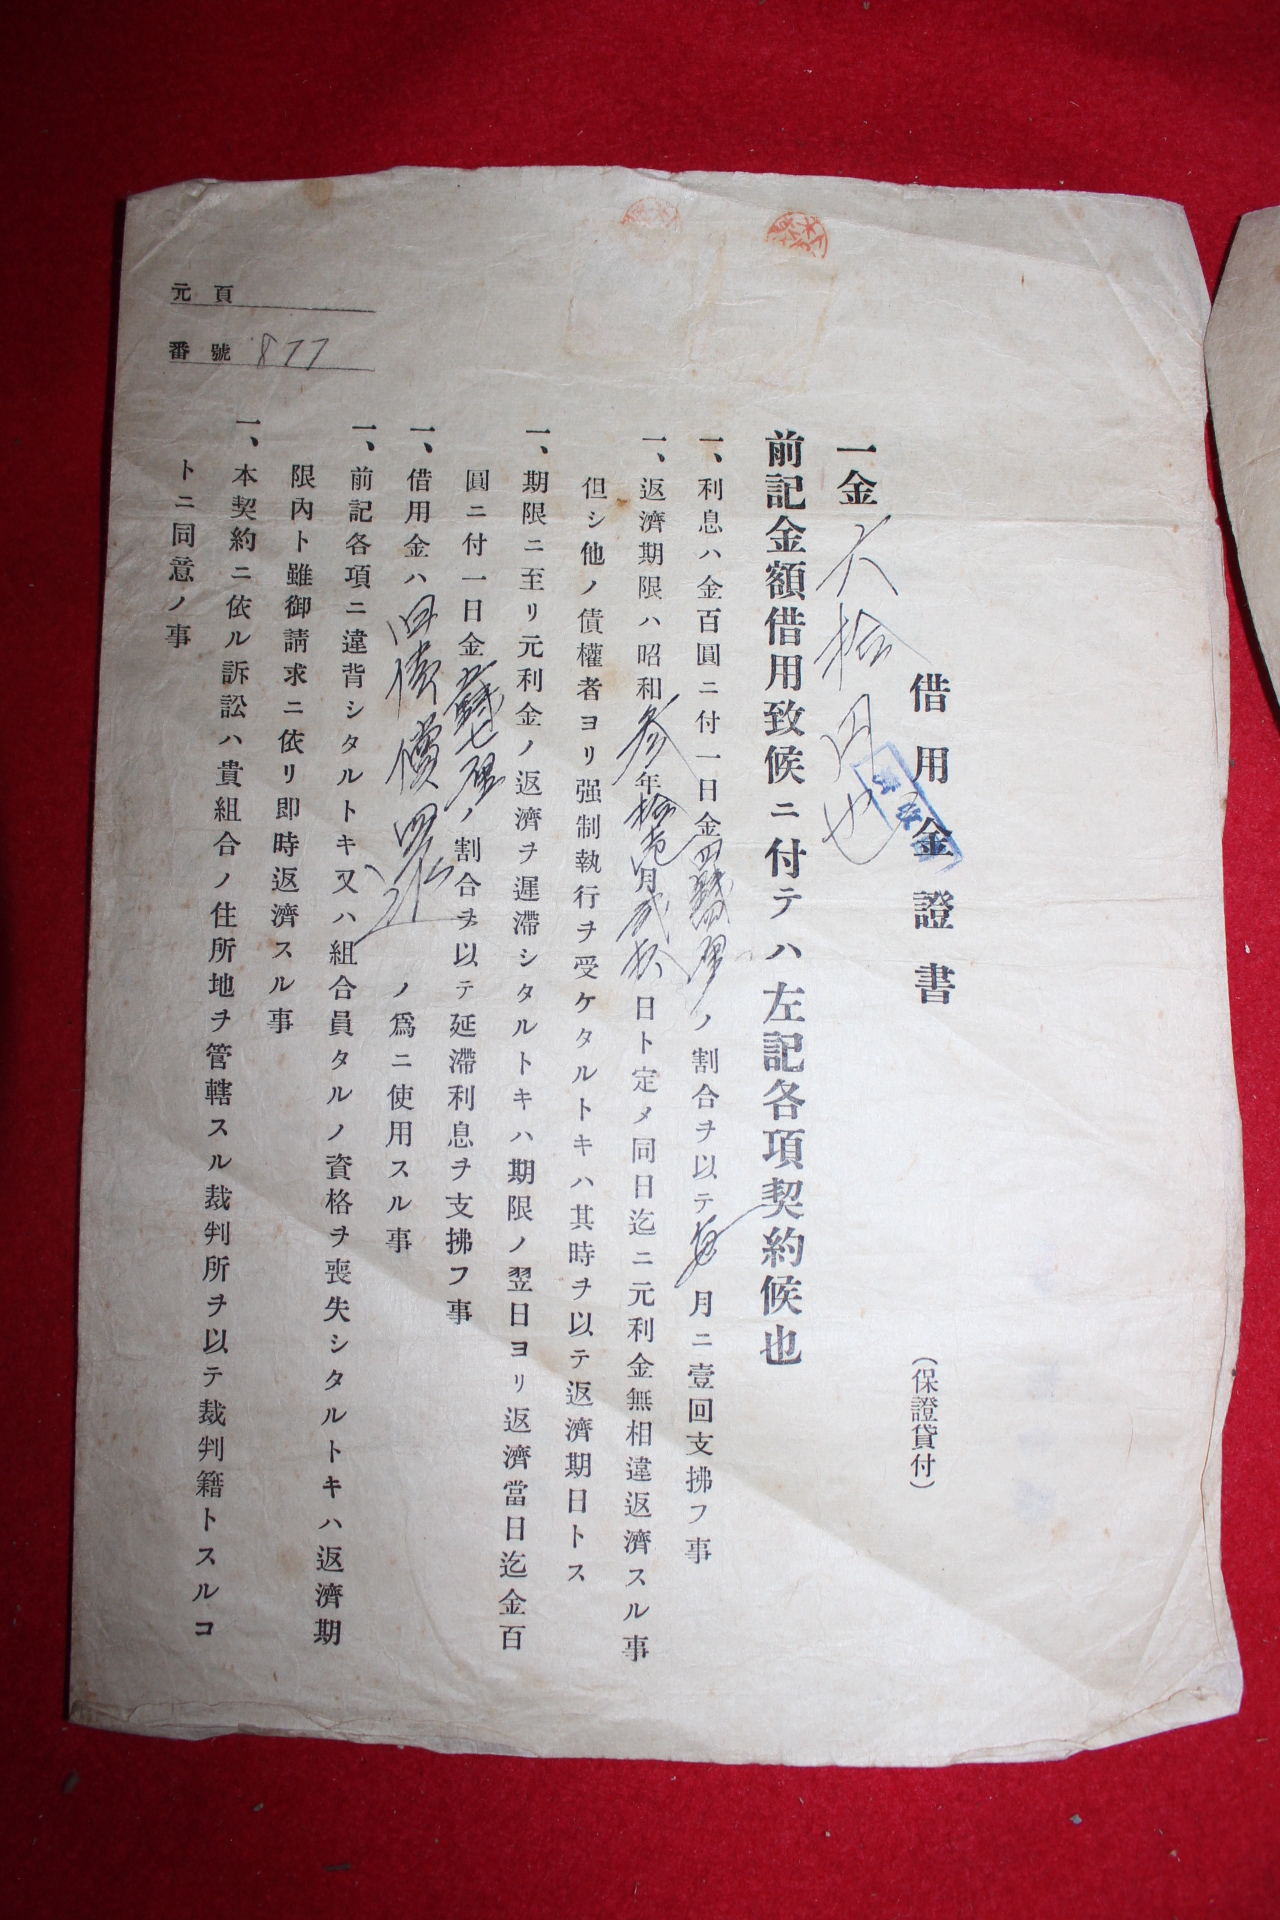 借用金證書
(保證貸付)
一金六拾円也
前記金額借用致候ニ付テハ左記各項契約候也
一、利息ハ金百圓ニ付一日金四錢四厘ノ割合ヲ以テ毎月ニ壹回支拂フ事
一、返濟期限ハ昭和參年拾壱月貳拾日ト定メ同日迄ニ元利金無相違返濟スル事
但シ他ノ債權者ヨリ强制執行ヲ受ケタルトキハ其時ヲ以テ返濟期日トス
一、期限ニ至リ元利金ノ返濟ヲ遲滯シタルトキハ期限ノ翌日ヨリ返濟當日迄金百
圓ニ付一日金五錢七厘ノ割合ヲ以テ延滯利息ヲ支拂フ事
一、借用金ハ旧債償ノ爲ニ使用スル事
一、前記各項ニ違背シタルトキ又ハ組合員タルノ資格ヲ喪失シタルトキハ返濟期
限內ト雖御請求ニ依リ卽時返濟スル事
一、本契約ニ依ル訴訟ハ貴組合ノ住所地ヲ管轄スル裁判所ヲ以テ裁判籍トスルコ
トニ同意ノ事
元頁
番號 877